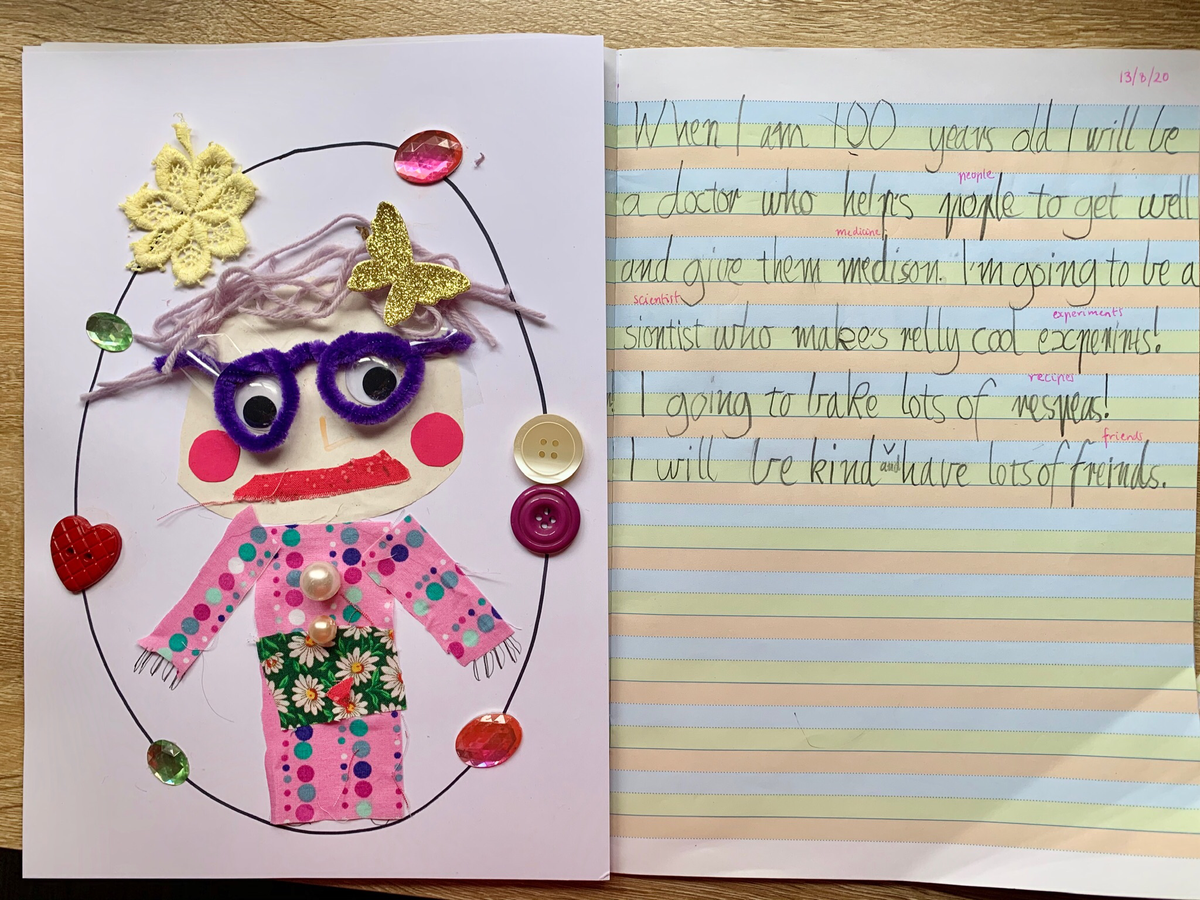 13/8/20
When I am 100 years old I will be
people
a doctor who helps pople to get well
medicine
and give them medison. I'm going to be a
scientist experiments
siontist who makes relly cool expenints!
recipes
I going to bake lots of respeas!
friends
I will be kind and have lots of freinds.